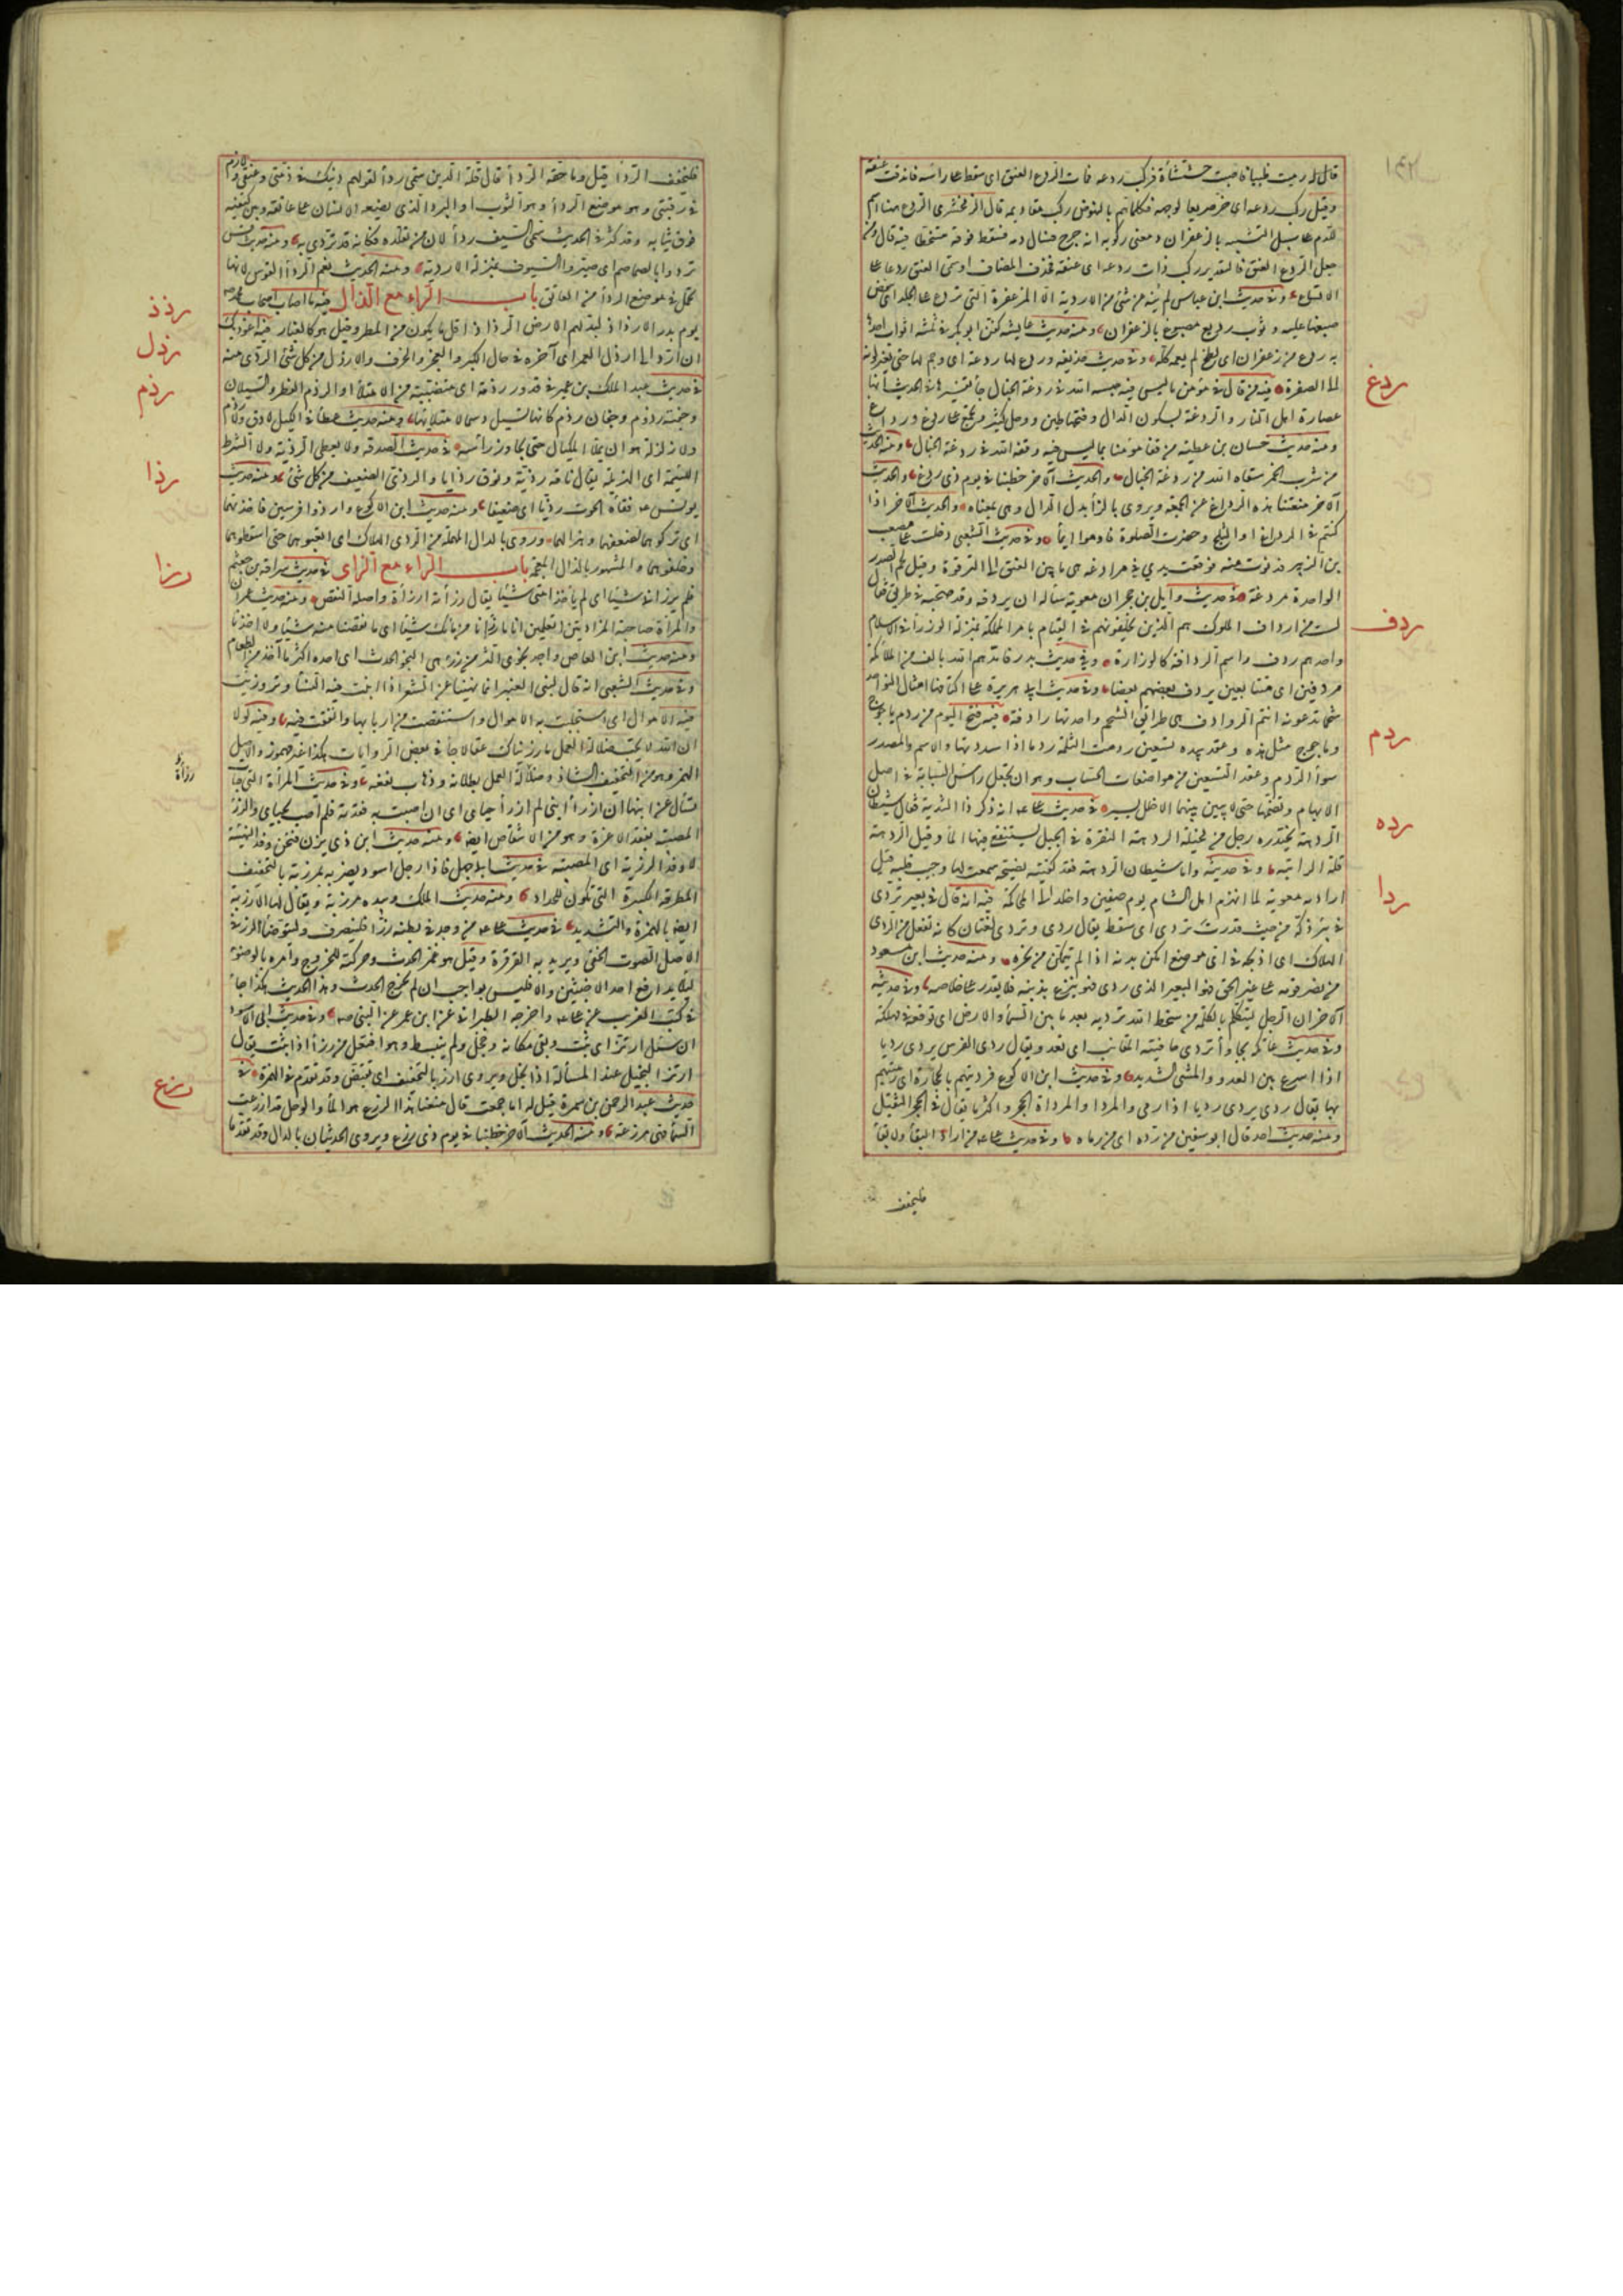 ١٤٢
قال له رميت ظبيا فاصبت خششاءه فركب ردعه فمات الردع العنق اى سقط على راسه فاندقت عنقه
وقيل ركب ردعه اى خر صريعا لوجهه فكلما هم بالنهوض ركب مقاديمه قال الزمخشرى الردع هنا اسم
للدم على سبيل التشبيه بالزعفران ومعنى ركوبه انه جرح فسال دمه فسقط فوقه متشحطا فيه قال ومن
جعل الردع العنق فالتقدير ركب ذات ردعه اى عنقه فحذف المضاف او سمى العنق ردعا على
الاتساع وفى حديث ابن عباس لم ينه عن شئ من الاردية الا المزعفرة التى تردع على الجلد اى تنفض
صبغها عليه وثوب رديع مصبوغ بالزعفران ومنه حديث عايشه كفن ابو بكر فى ثلثه اثواب احدها
به ردع من زعفران اى لطخ لم يعمه كله وفى حديث حذيفه وردع لها ردعة اى وجم لها حتى تغير لونه
ردغ
الى الصفرة فيه من قال فى مؤمن ما ليس فيه حبسه الله فى ردغة الخبال جاء تفسيرها فى الحديث انها
عصارة اهل النار والردغة بسكون الدال وفتحها طين ووحل كثير وتجمع على ردغ ورداغ
ومنه حديث حسان بن عطيه من قفا مؤمنا بما ليس فيه وقفه الله فى ردغة الخبال ومنه الحديث
من شرب الخمر سقاه الله من ردغة الخبال والحديث الآخر خطبنا فى يوم ذى ردغ والحديث
الآخر منعتنا هذه الرداغ عن الجمعة ويروى بالزاء بدل الدال وهى بمعناه والحديث الآخر اذا
كنتم فى الرداغ او الثلج وحضرت الصلوة فاوموا ايماء وفى حديث الشعبى دخلت على مصعب
بن الزبير فدنوت منه فوقعت يدى فى مرادغه هى ما بين العنق الى الترقوة وقيل لحم الصدر
ردف
الواحدة مردغة فى حديث وايل بن حجر ان معوية ساله ان يردفه وقد صحبه فى طريق فقال
لست من ارداف الملوك هم الذين يخلفونهم فى القيام بامر المملكة بمنزلة الوزراء فى الاسلام
واحدهم ردف واسم الردافة كالوزارة وفى حديث بدر فامدهم الله بالف من الملائكة
مردفين اى متتابعين يردف بعضهم بعضا وفى حديث ابى هريرة على اكتافها امثال النواجد
شحما تدعونه انتم الروادف هى طرايق الشحم واحدتها رادفة فيه فتح اليوم من ردم ياجوج
ردم
وماجوج مثل هذه وعقد بيده تسعين ردمت الثلمة ردما اذا سددتها والاسم والمصدر
سواء الردم وعقد التسعين من مواضعات الحساب وهو ان تجعل راس السبابة فى اصل
الابهام وتضمها حتى لا يبين بينهما الا خلل يسير فى حديث على انه ذكر ذا الثدية فقال شيطان
رده
الردهة يحتدره رجل من بجيلة الردهة النقرة فى الجبل يستنقع فيها الماء وقيل الردهة
قلة الرابية وفى حديثه واما شيطان الردهة فقد كفيته بصيحة سمعت لها وجيب قلبه قيل
ردا
اراد به معوية لما انهزم اهل الشام يوم صفين واخلد الى المحاكمة فيه انه قال فى بعير تردى
فى بئر ذكه من حيث قدرت تردى اى سقط يقال ردى وتردى لغتان كانه تفعل من الردى
الهلاك اى اذبحه فى اى موضع امكن بدنه اذا لم تتمكن من نحره ومنه حديث ابن مسعود
من نصر قومه على غير الحق فهو كالبعير الذى ردى فهو ينزع بذنبه فلا يقدر على خلاصه وفى حديثه
الآخر ان الرجل ليتكلم بالكلمة من سخط الله ترديه بعد ما بين السماء والارض اى توقعه فى مهلكة
وفى حديث عاتكه بجاواء تردى حافتيه المقانب اى تعدو يقال ردى الفرس يردى رديا
اذا اسرع بين العدو والمشى الشديد وفى حديث ابن الاكوع فرديتهم بالحجارة اى رميتهم
بها يقال ردى يردى رديا اذا رمى والمردا والمرداة الحجر واكثر ما يقال فى الحجر الثقيل
ومنه حديث احد قال ابو سفين من رداه اى من رماه وفى حديث على من اراد البقاء ولا بقاء
فليخفف
فليخفف الرداء قيل وما خفة الرداء قال قلة الدين سمى رداء لقولهم دينك فى ذمتى وعنقى ولازم
فى رقبتى وهو موضع الرداء وهو الثوب او البرد الذى يضعه الانسان على عاتقه وبين كتفيه
فوق ثيابه وقد كثر فى الحديث سمى السيف رداء لان من تقلده فكانه قد تردى به ومنه حديث قس
تردوا بالصماصم اى صيروا السيوف بمنزلة الاردية ومنه الحديث نعم الرداء القوس لانها
تحمل فى موضع الرداء من العاتق باب الراء مع الذال فيه ما اصاب اصحاب محمد صه
رذذ
يوم بدر الا رذاذ لبد لهم الارض الرذاذ اقل ما يكون من المطر وقيل هو كالغبار فيه اعوذ بك
رذل
ان ارد الى ارذل العمر اى آخره فى حال الكبر والعجز والخرف والارذل من كل شئ الردى منه
رذم
فى حديث عبد الملك بن عمير فى قدور رذمة اى متصببة من الامتلاء والرذم القطر والسيلان
وجفنة رذوم وجفان رذم كانها تسيل دسما لامتلائها ومنه حديث عطاء فى الكيل لا دق ولا رذم
ولا زلزلة هو ان يملاء المكيال حتى يجاوز راسه فى حديث الصدقه ولا يعطى الرذية ولا الشرط
رذا
اللئيمة اى الهزيلة يقال ناقه رذية ونوق رذايا والرذى الضعيف من كل شئ ومنه حديث
يونس فقاءه الحوت رذيا اى ضعيفا ومنه حديث ابن الاكوع وارذوا فرسين فاخذتهما
اى تركوهما لضعفهما وهزالهما وروى بالدال المهملة من الردى الهلاك اى اتعبوهما حتى اسقطوهما
وخلفوهما والمشهور بالذال المعجمة باب الراء مع الزاى فى حديث سراقة بن جعشم
رزا
فلم يرزانى شيئا اى لم ياخذا منى شيئا يقال رزأته ارزأه واصله النقص ومنه حديث عمران
والمرأة صاحبة المزادتين اتعلمين انا ما رزأنا من مائك شيئا اى ما نقصنا منه شيئا ولا اخذنا
ومنه حديث ابن العاص واجد نجوى اكثر من رزئى النجو الحدث اى اجده اكثر مما آخذ من الطعام
وفى حديث الشعبى انه قال لبنى العنبر انما نهينا عن الشعر اذا ابنت فيه النساء وتروزئت
فيه الاموال اى استجلبت به الاموال واستنقصت من اربابها وانفقت فيه وفيه لولا
ان الله لا يحب ضلالة العمل ما رزيناك عقالا جاء فى بعض الروايات هكذا غير مهموز والاصل
رزأة
الهمز وهو من التخفيف الشاذ وضلالة العمل بطلانه وذهاب نفعه وفى حديث المرأة التى جاءت
تسال عن ابنها ان ارزأ ابنى لم ارزأ حياى اى ان اصبت به فقدته فلم اصب بحياى والرزء
المصيبة بفقد الاعزة وهو من الانتقاص ايض ومنه حديث ابن ذى يزن فنحن وفد التهنئة
لا وفد المرزية اى المصيبة فى حديث ابى جهل فاذا رجل اسود يضربه بمرزبة بالتخفيف
المطرقة الكبيرة التى تكون للحداد ومنه حديث الملك وبيده مرزبة ويقال لها الارزبة
ايض بالهمزة والتشديد فى حديث على من وجد فى بطنه رزا فلينصرف وليتوضأ الرز فى
الاصل الصوت الخفى ويريد به القرقرة وقيل هو غمز الحدث وحركته للخروج وامره بالوضوء
ليلا يدافع احد الاخبثين والا فليس بواجب ان لم يخرج الحدث وهذا الحديث هكذا جاء
فى كتب الغريب عن على واخرجه الطبرانى عن ابن عمر عن النبى صه وفى حديث ابى الاسود
ان سئل ارتز اى ثبت وبقى مكانه وخجل ولم ينبسط وهو افتعل من رز اذا ثبت يقال
ارتز البخيل عند المسألة اذا بخل ويروى ارز بالتخفيف اى تقبض وقد تقدم فى الهمزة فى
رزغ
حديث عبد الرحمن بن سمرة قيل له اما جمعت قال منعنا هذا الرزغ هو الماء والوحل قد ارزغت
السماء فهى مرزغة ومنه الحديث الآخر خطبنا فى يوم ذى رزغ ويروى الحديثان بالدال وقد تقدما